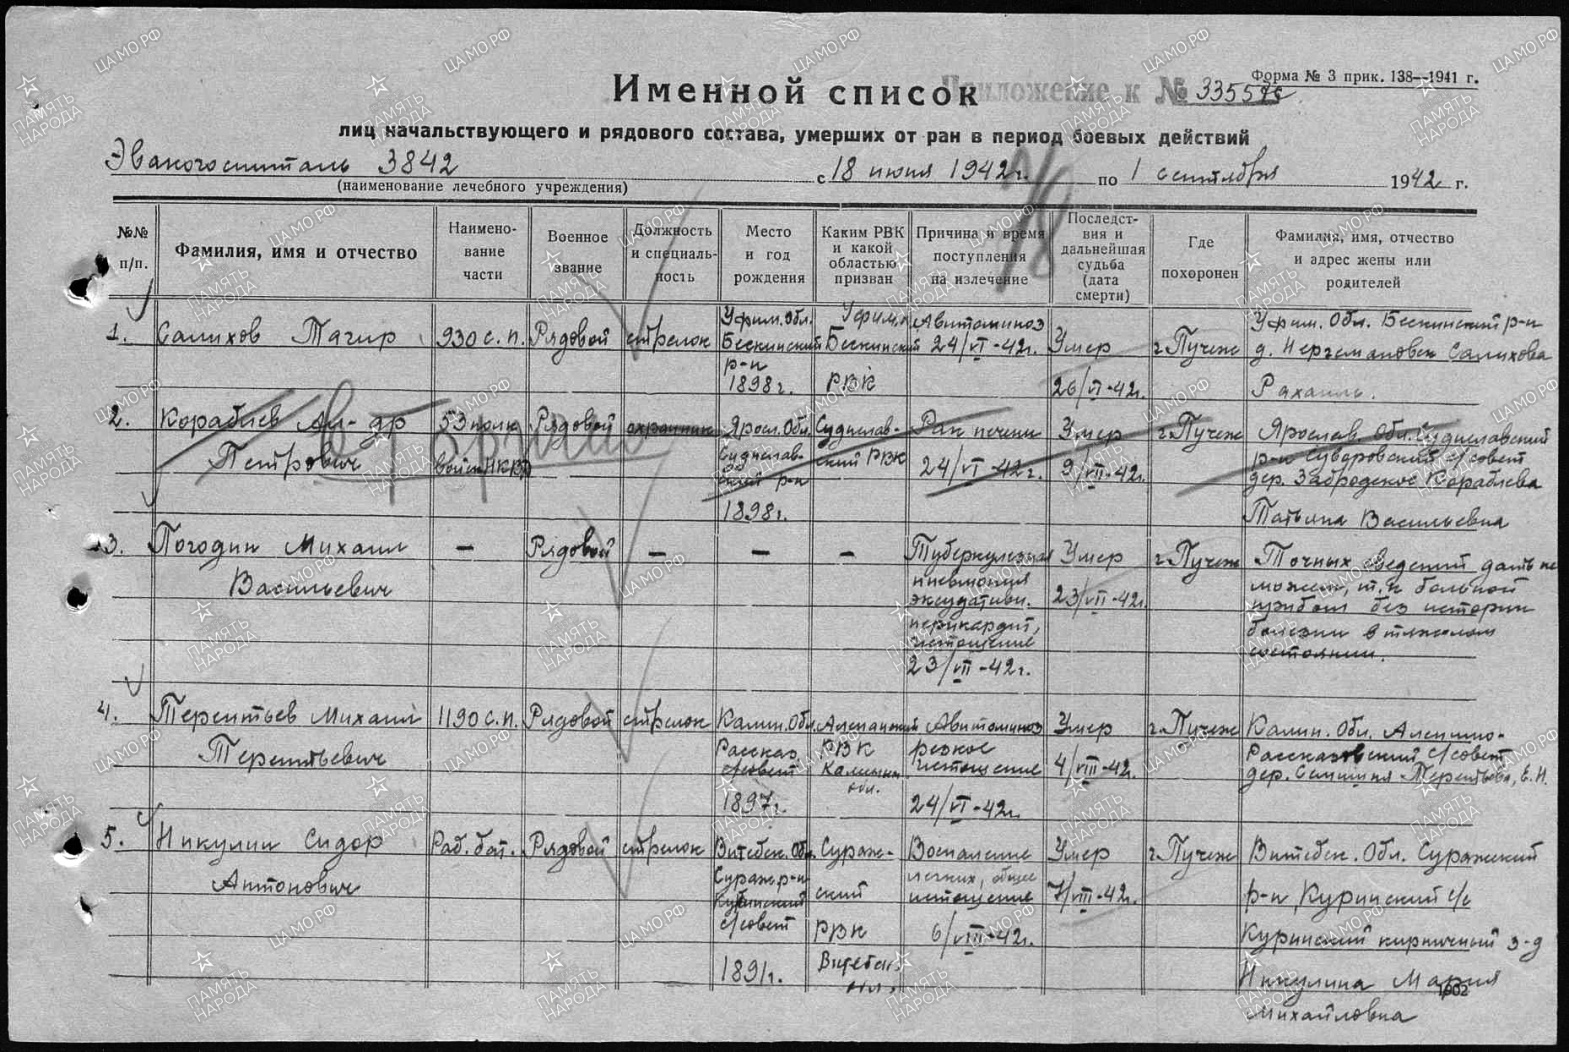 Форма № 3 прик. 138—1941 г.
Именной список
Приложение к № 33557с
лиц начальствующего и рядового состава, умерших от ран в период боевых действий
Эвакогоспиталь 3842 с 18 июня 1942г. по 1 сентября 1942 г.
(наименование лечебного учреждения)
№№ п/п.
Фамилия, имя и отчество
Наименование части
Военное звание
Должность и специальность
Место и год рождения
Каким РВК и какой областью призван
Причина и время поступления на излечение
Последствия и дальнейшая судьба (дата смерти)
Где похоронен
Фамилия, имя, отчество и адрес жены или родителей
1. Салихов Тагир
930 с.п.
Рядовой
стрелок
Уфим. Обл.
Бескинский
р-н
1898г.
Уфим.
Бескинский
РВК
Авитаминоз
24/VI-42г.
Умер
26/VI-42г.
г.Пучеж
Уфим. Обл. Бескинский р-н
д. Салихова
2. Кораблев Ал-др
Петрович
53 полк
войск НКВД
Рядовой
охранник
Яросл. Обл.
Судислав-
ский р-н
1898г.
Судислав-
ский РВК
Рак печени
24/VI-42г.
Умер
9/VII-42г.
г.Пучеж
Ярослав. Обл. Судиславский
р-н Суворовский с/совет
дер. Забродское Кораблева
Татьяна Васильевна
3. Погодин Михаил
Васильевич
—
Рядовой
—
—
—
Туберкулезная
пневмония
эксудативн.
перикардит,
истощение
23/VII-42г.
Умер
23/VII-42г.
г.Пучеж
Точных сведений дать не
можем, т.к больной
прибыл без истории
болезни в тяжелом
состоянии.
4. Терентьев Михаил
Терентьевич
1190 с.п.
Рядовой
стрелок
Калин. Обл.
Рассказ.
с/совет
1897г.
РВК
Калинин
обл.
Авитаминоз
резкое
истощение
24/VI-42г.
Умер
4/VIII-42г.
г.Пучеж
Калин. Обл.
Рассказовский с/совет
дер. Терентьева, Е.Н.
5. Никулин Сидор
Антонович
Раб. бат.
Рядовой
стрелок
Витебск. Обл.
Сураж р-н
Куринский
с/совет
1891г.
Сураж-
ский
РВК
Витебск.
обл.
Воспаление
легких, общее
истощение
6/VIII-42г.
Умер
7/VIII-42г.
г.Пучеж
Витебск. Обл. Суражский
р-н, Куринский с/с
Куринский кирпичный з-д
Никулина Мария
Михайловна
1602
ЦАМО.РФ
ПАМЯТЬ НАРОДА